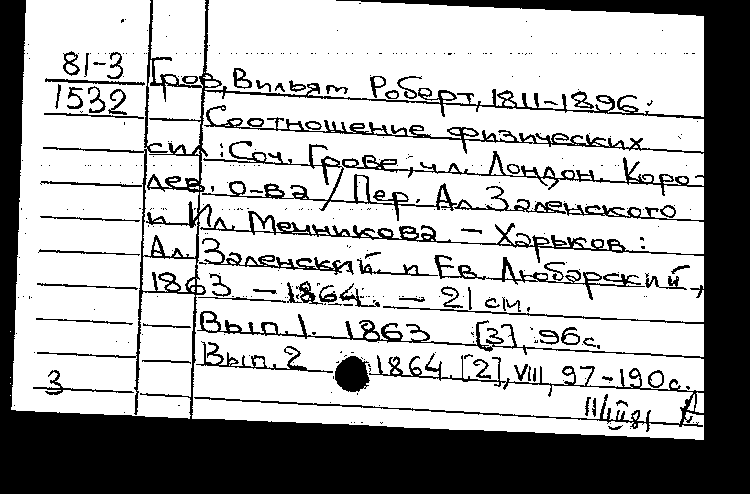 81-3
1532
Гров, Вильям Роберт, 1811-1896:
Соотношение физических
сил: Соч. Грове, чл. Лондон. Коро-
лев. о-ва / Пер. Ал. Заленского
и Ил. Мечникова. - Харьков:
Ал. Заленский и Ев. Любарский,
1863 - 1864. - 21 см.
Вып. 1. 1863 [3], 96 с.
Вып. 2 1864. [2], VIII, 97-190 с.
3